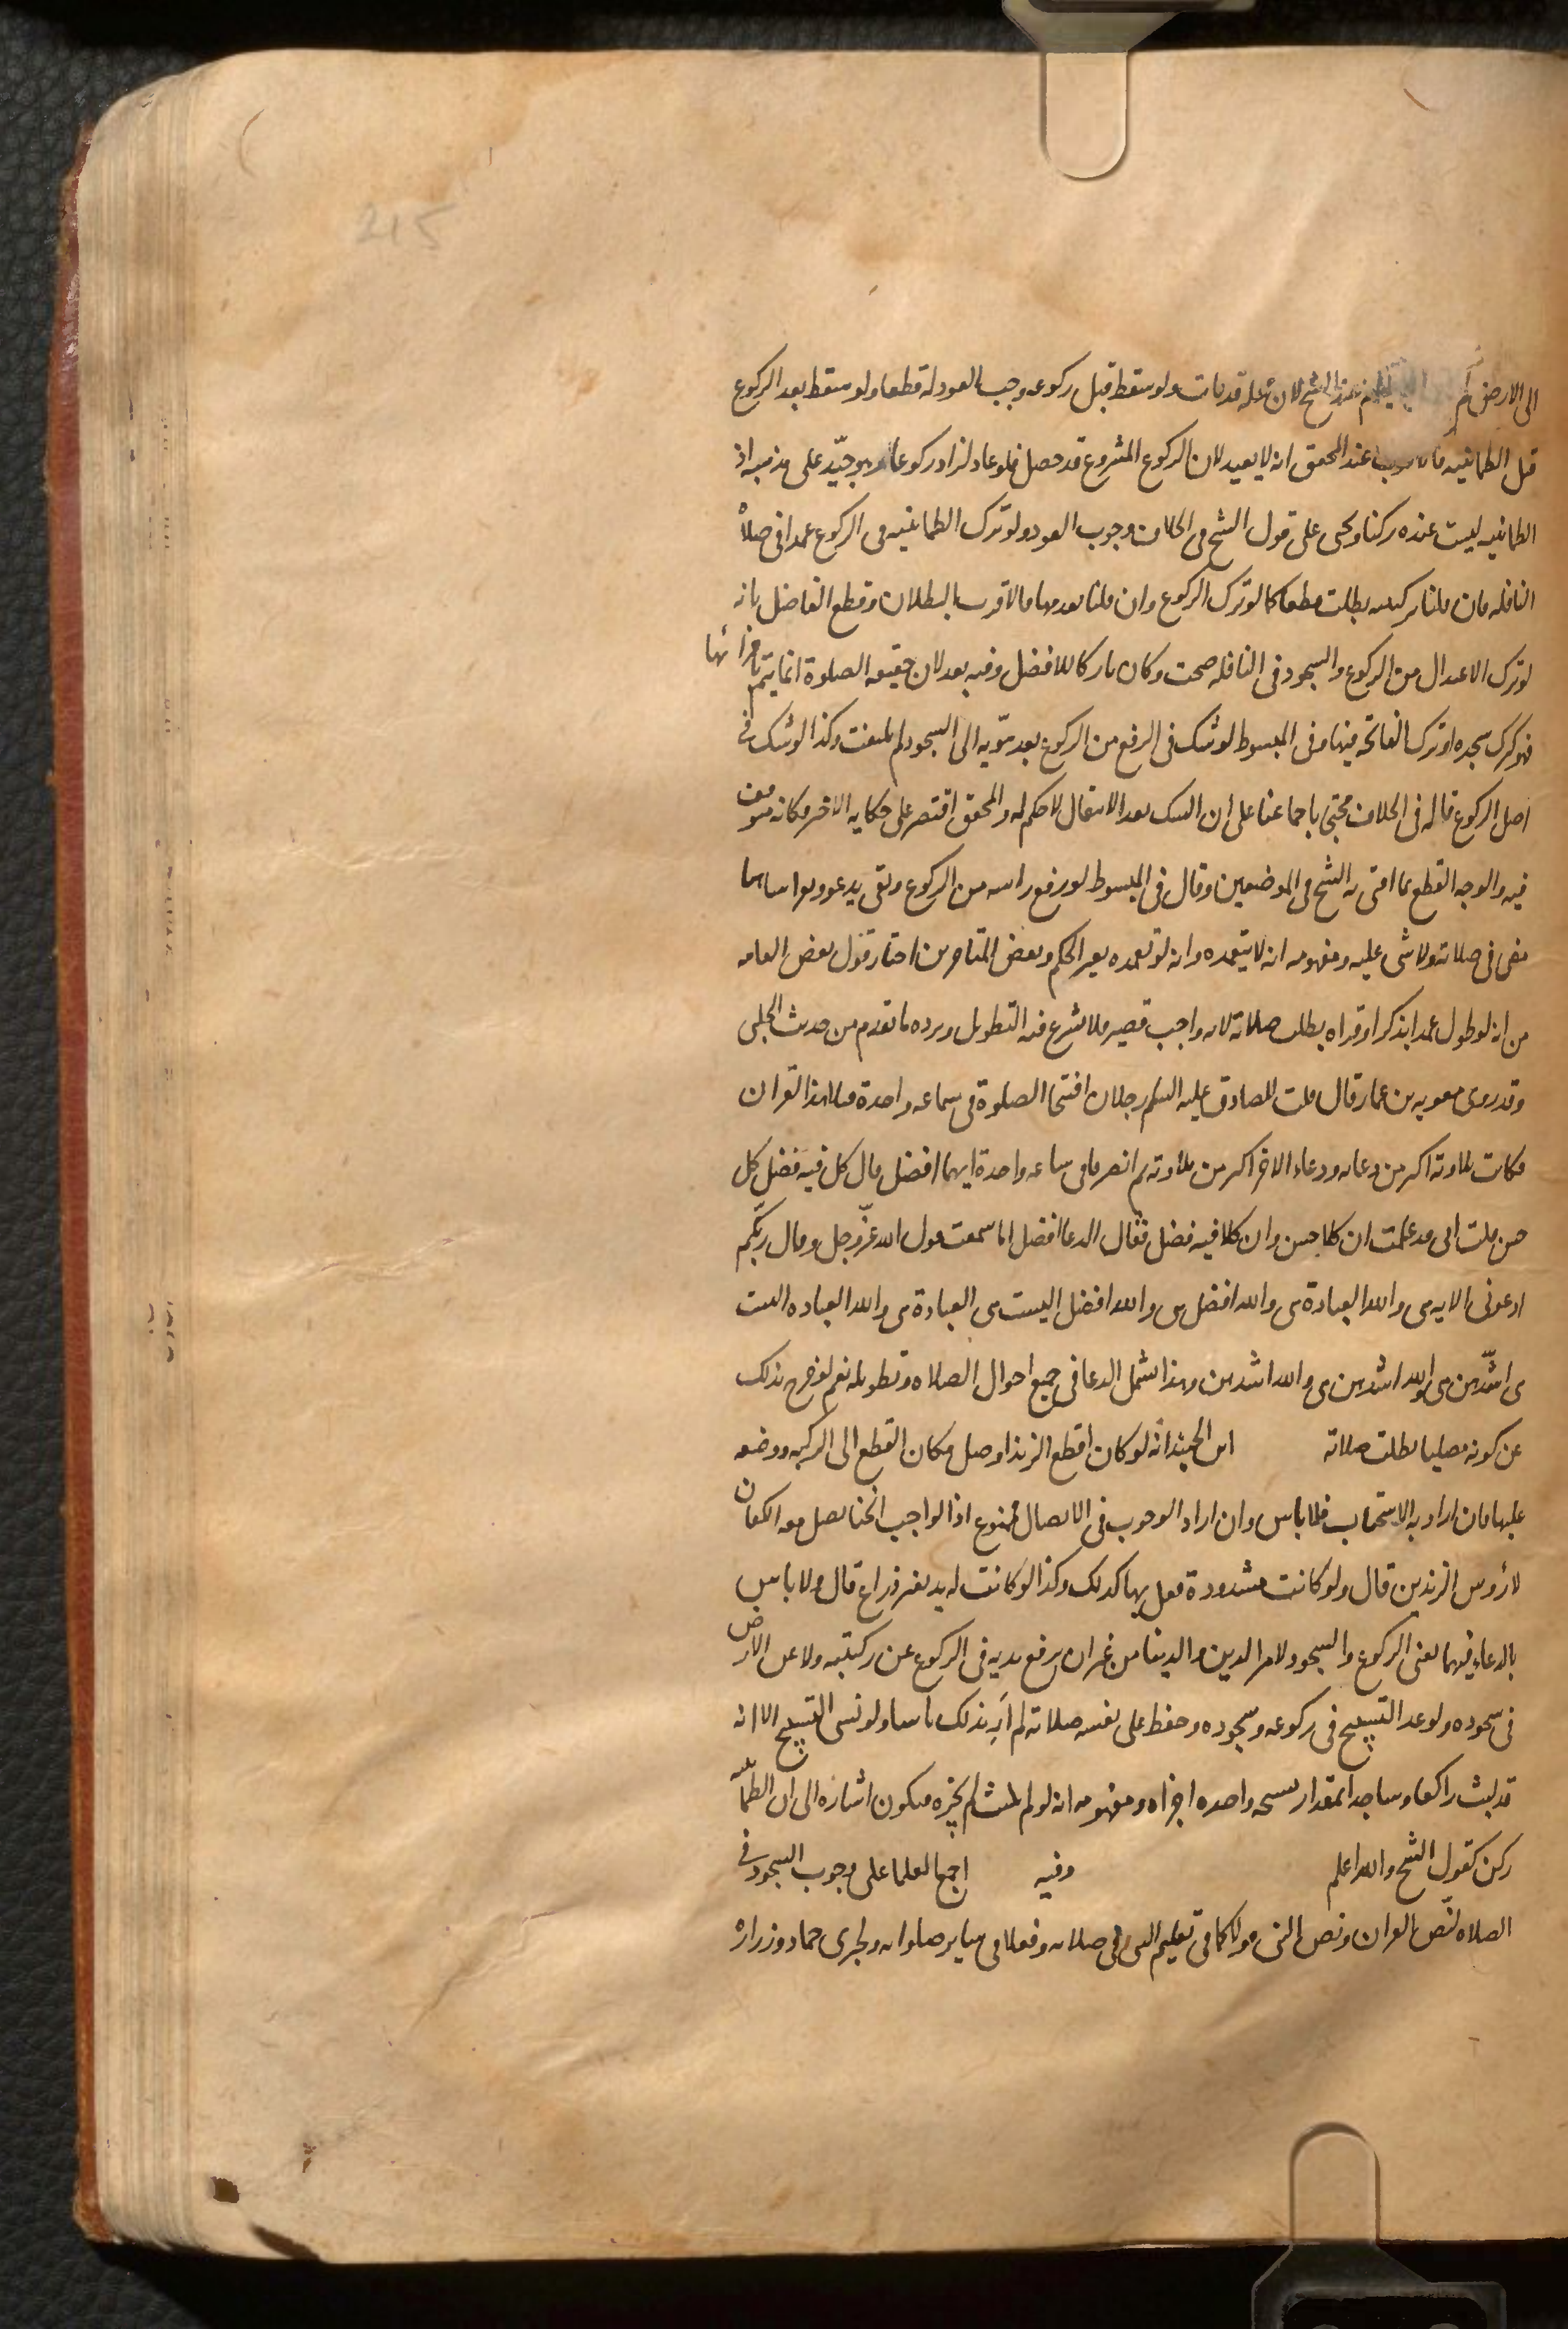 215
الى الارض لم عند الشيخ لان محله قد فات ولو سقط قبل ركوعه وجب العود له قطعا ولو سقط بعد الركوع
قبل الطمانينه عند المحقق انه لا يعيد لان الركوع المشروع قد حصل فلو عاد لزاد ركوعا وهو جيّد على مذهبه اذ
الطمانينه ليست عنده ركنا ويجي على قول الشيخ في الخلاف وجوب العود ولو ترك الطمانينه في الركوع عمدا في صلاة
النافله فان قلنا بركنيته بطلت قطعا كما لو ترك الركوع وان قلنا بعدمها فالاقرب البطلان وقطع الفاضل بانه
لو ترك الاعتدال من الركوع والسجود في النافله صحت وكان تاركا للافضل وفيه بعد لان حقيقه الصلوة انما يتم باجزائها
فهو كترك سجده او ترك الفاتحة فيها وفي المبسوط لو شك في الرفع من الركوع بعد هويه الى السجود لم يلتفت وكذا لو شك في
اصل الركوع قاله في الخلاف محتجا باجماعنا على ان الشك بعد الانتقال لا حكم له والمحقق اقتصر على حكايه الاخير وكانه متوقف
فيه والوجه القطع بما افتى به الشيخ في الموضعين وقال في المبسوط لو رفع راسه من الركوع وبقى يدعو ويقرا ساهيا
مضى في صلاته ولا شى عليه ومفهومه انه لا يتعمده وانه لو تعمده يغير الحكم وبعض المتاخرين اختار قول بعض العامه
من انه لو طول عمدا بذكر او قراه بطلت صلاته لانه واجب قصير فلا يشرع فيه التطويل ويرده ما تقدم من حديث الحلبى
وقد روى معويه بن عمار قال قلت للصادق عليه السلم رجلان افتتحا الصلوة في ساعه واحدة فتلا هذا القران
فكانت تلاوته اكثر من دعائه ودعاء الاخر اكثر من تلاوته ثم انصرفا في ساعه واحدة ايهما افضل قال كل فيه فضل كل
حسن قلت انى قد علمت ان كلا حسن وان كلا فيه فضل فقال الدعا افضل اما سمعت قول الله عزّ وجل وقال ربّكم
ادعونى الايه هى والله العبادة هى والله افضل هى والله افضل اليست هى العبادة هى والله العباده اليست
هى اشدّهن هى والله اشدهن هى والله اشدهن وهذا يشمل الدعا في جميع احوال الصلاه وتطويله نعم لو خرج بذلك
عن كونه مصليا بطلت صلاته ابن الجنيد انه لو كان اقطع الزند اوصل مكان القطع الى الركبه ووضعه
عليها فان اراد به الاستحباب فلا باس وان اراد الوجوب في الايصال فممنوع اذ الواجب انحنا يصل معه الكفان
لا رؤس الزندين قال ولو كانت مشدودة فعل بها كذلك وكذا لو كانت له يد بغير ذراع قال ولا باس
بالدعاء فيهما يعنى الركوع والسجود لامر الدين والدنيا من غير ان يرفع يديه في الركوع عن ركبتيه ولا عن الارض
في سجوده ولو عد التسبيح في ركوعه وسجوده وحفظ على نفسه صلاته لم ارَ بذلك باسا ولو نسى التسبيح الا انه
قد لبث راكعا وساجدا بمقدار تسبيحه واحده اجزاه ومفهومه انه لو لم يلبث لم يجزه فيكون اشاره الى ان الطمانينه
ركن كقول الشيخ والله اعلم وفيه اجمع العلما على وجوب السجود في
الصلاه لنصّ القران ونص النبى قولا كما في تعليم المسى في صلاته وفعلا في ساير صلواته ولخبرى حماد وزراره